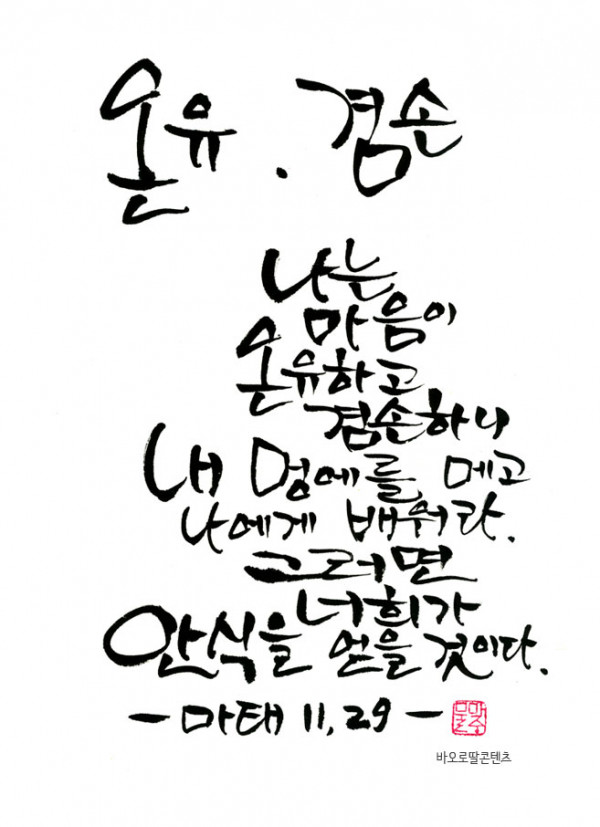 온유 . 겸손
나는
마음이
온유하고
겸손하니
내 멍에를 메고
나에게 배워라.
그러면
너희가
안식을 얻을 것이다.
- 마태 11,29 -
바오로딸콘텐츠